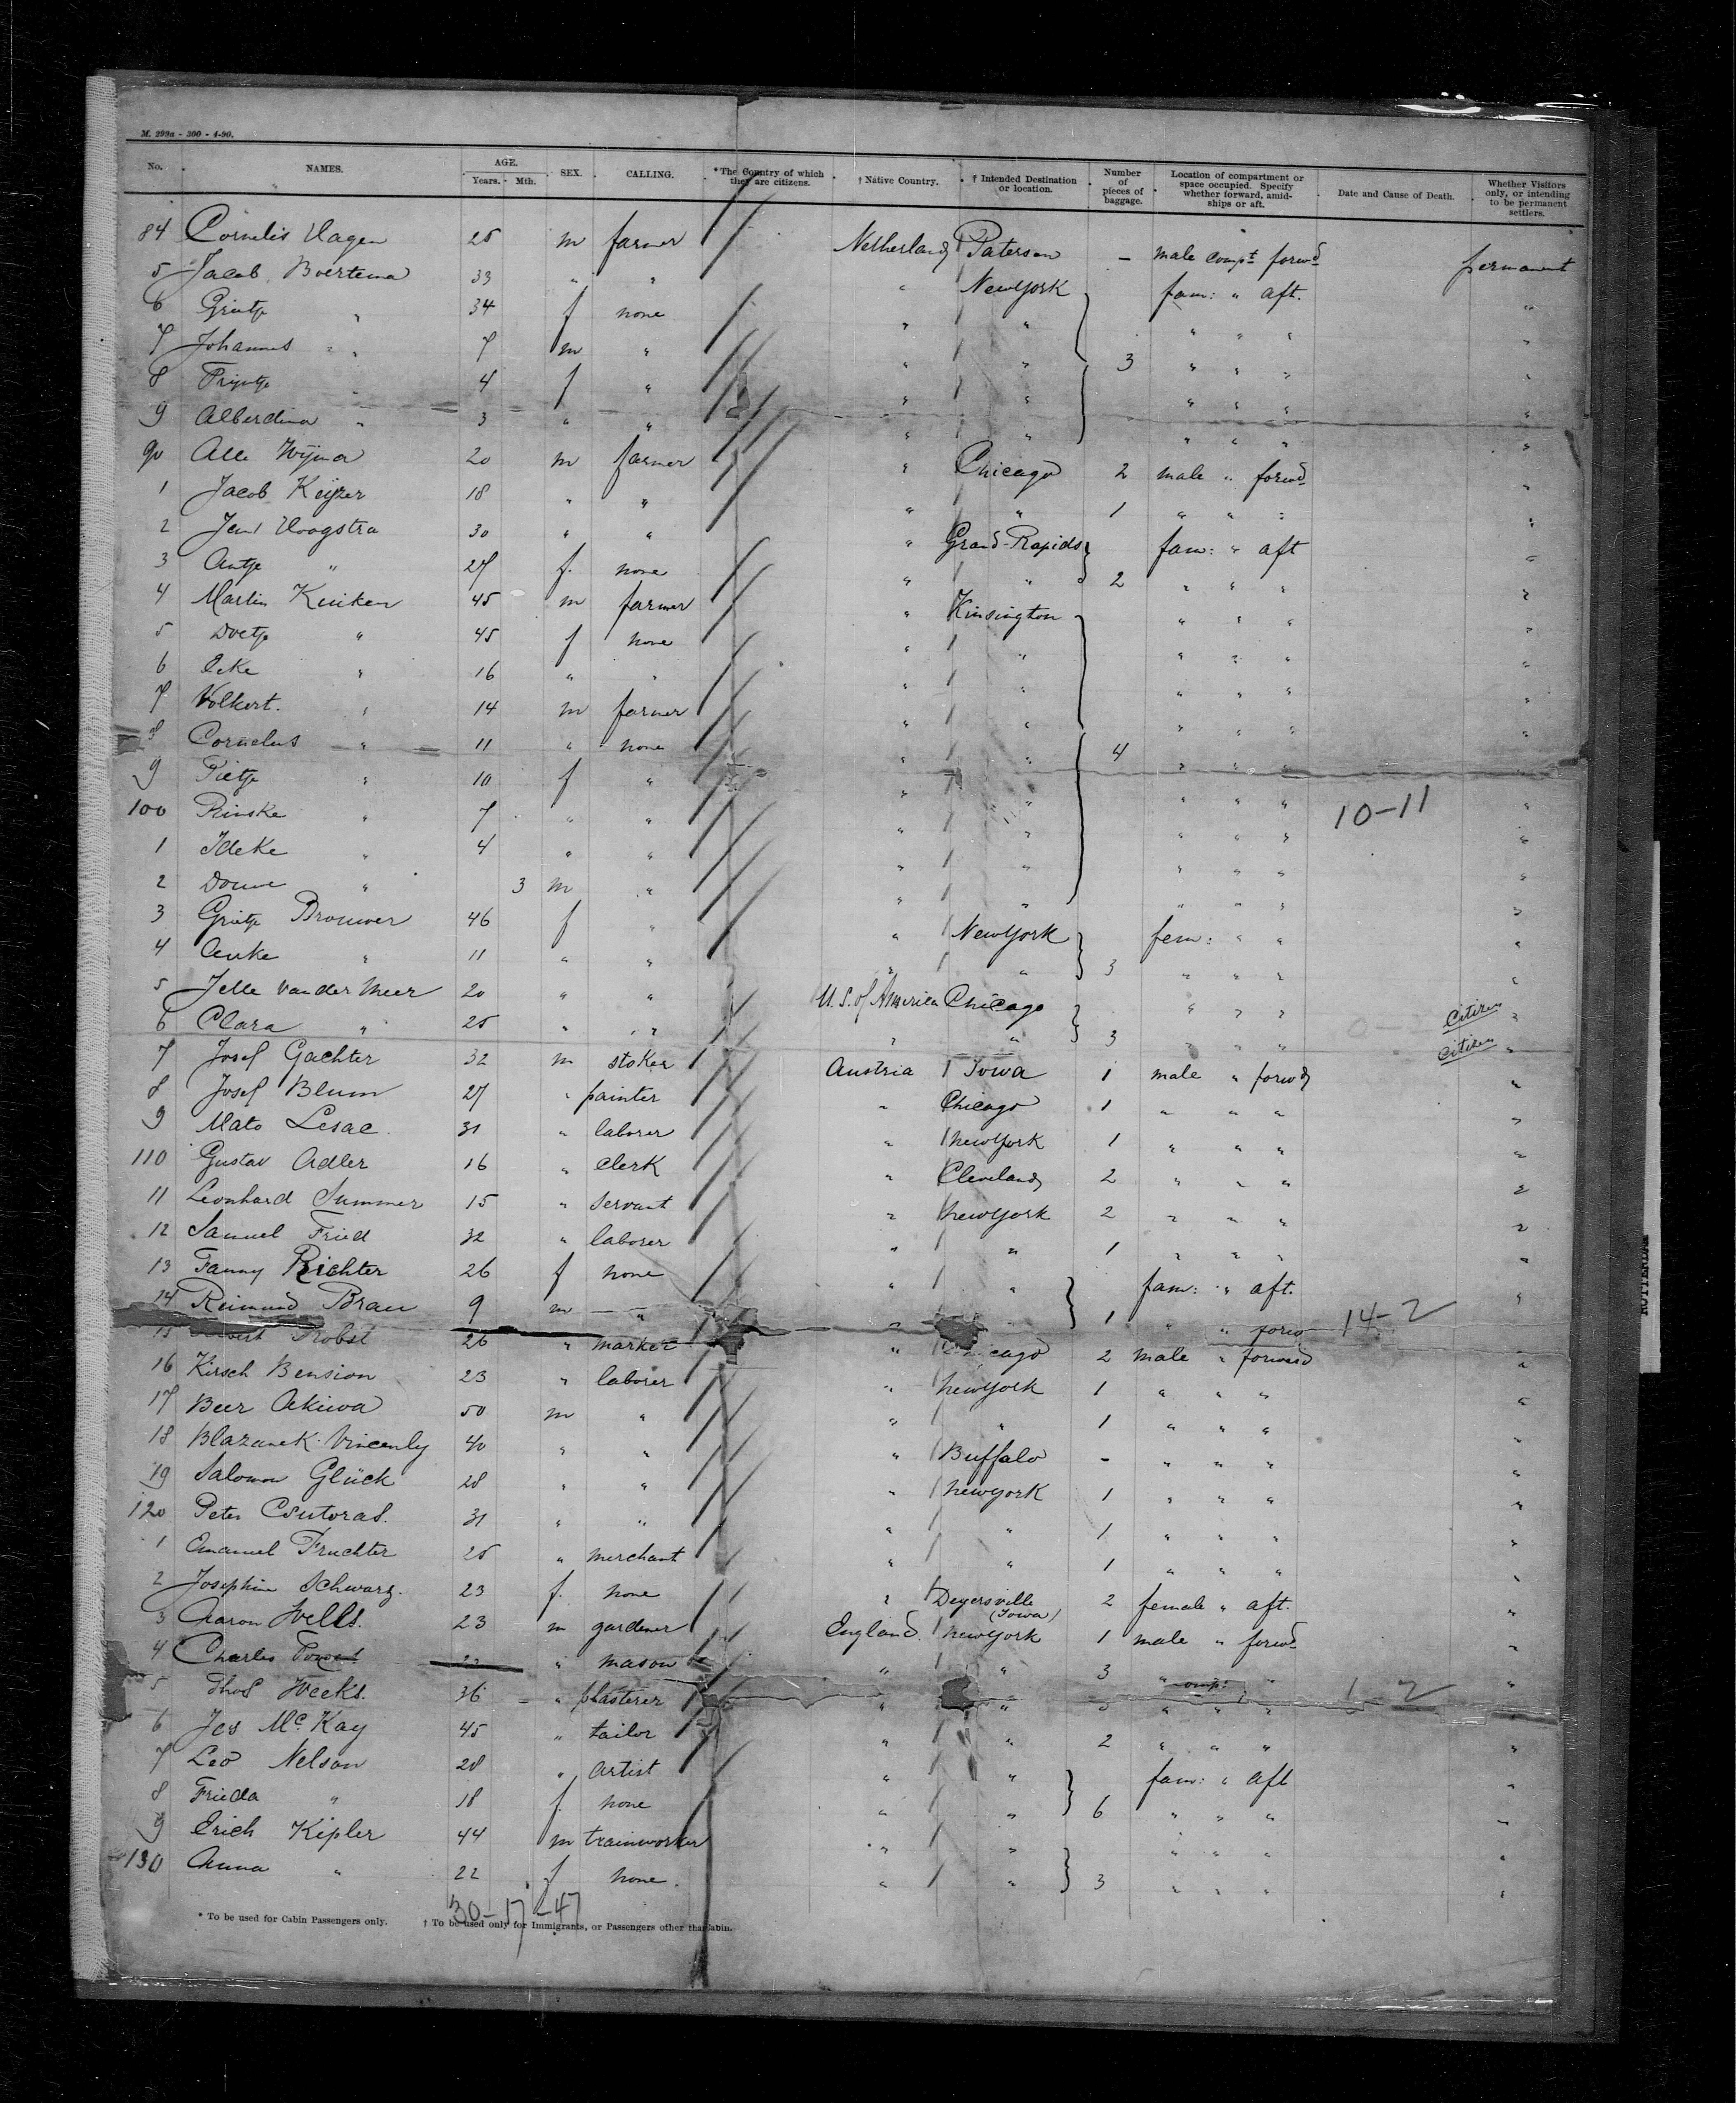 M. 299a - 300 - 4-90.
No. NAMES. AGE. Years. Mth. SEX. CALLING. * The Country of which they are citizens. † Native Country. † Intended Destination or location. Number of pieces of baggage. Location of compartment or space occupied. Specify whether forward, amidships or aft. Date and Cause of Death. Whether Visitors only, or intending to be permanent settlers.
84 Cornelis Hagen 25 m farmer Netherland Paterson - male compt forwd permanent
5 Jacob Boertema 33 " " " New York fam: " aft. "
6 Grietje " 34 f none " " " " " "
7 Johannes " 7 m " " " 3 " " " "
8 Trijntje " 4 f " " " " " " "
9 Alberdina " 3 " " " " " " " "
90 Alle Wijma 20 m farmer " Chicago 2 male " forwd "
1 Jacob Keijzer 18 " " " " 1 " " " "
2 Jan Hoogstra 30 " " " Grand-Rapids fam: " aft "
3 Antje " 27 f. none " " 2 " " " "
4 Martin Kuiken 45 m farmer " Kinsington " " " "
5 Doetje " 45 f none " " " " " "
6 Eeke " 16 " " " " " " " "
7 Volkert. " 14 m farmer " " " " " "
8 Cornelus " 11 " none " " 4 " " " "
9 Pietje " 10 f " " " " " " "
100 Rinske " 7 " " " " " " " 10-11 "
1 Ideke " 4 " " " " " " " "
2 Douwe " 3 m " " " " " " "
3 Grietje Brouwer 46 f " " New York fem: " " "
4 Anke " 11 " " " " 3 " " " "
5 Jelle van der Meer 20 " " U.S. of America Chicago " " " Citizen "
6 Clara " 25 " " " " 3 " " " Citizen "
7 Josef Gachter 32 m stoker Austria Iowa 1 male " forwd "
8 Josef Blum 27 " painter " Chicago 1 " " " "
9 Mato Lesac 31 " laborer " New York 1 " " " "
110 Gustav Adler 16 " clerk " Cleveland 2 " " " "
11 Leonhard Summer 15 " servant " New York 2 " " " "
12 Samuel Fried 32 " laborer " " 1 " " " "
13 Fanny Richter 26 f none " " fam: " aft. "
14 Reimund Brau 9 m " " 1 " " forw 14-2
15 Probst 26 " market " Chicago 2 male " forward "
16 Kirsch Bension 23 " laborer " New York 1 " " " "
17 Beer Akiwa 50 m " " " 1 " " " "
18 Blazanek Vincenly 40 " " " Buffalo - " " " "
19 Salomon Glück 28 " " " New York 1 " " " "
120 Peter Csutoras. 31 " " " " 1 " " " "
1 Emanuel Fruchter 25 " merchant " " 1 " " " "
2 Josephine Schwarz. 23 f. none " Deyersville (Iowa) 2 female " aft. "
3 Aaron Wells. 23 m gardener England. New York 1 male " forwd "
4 Charles " mason " " 3 " comp: " "
5 Thos Weeks. 36 " plasterer " " " " " 1-2 "
6 Jas McKay 45 " tailor " " 2 " " " "
7 Leo Nelson 28 " artist " " fam: " aft "
8 Frieda " 18 f. none " " 6 " " " "
9 Erich Kipler 44 m trainworker " " " " " "
130 Anna " 22 f none. " " 3 " " " "
30-17-47
* To be used for Cabin Passengers only. † To be used only for Immigrants, or Passengers other than Cabin.
ROTTERDAM